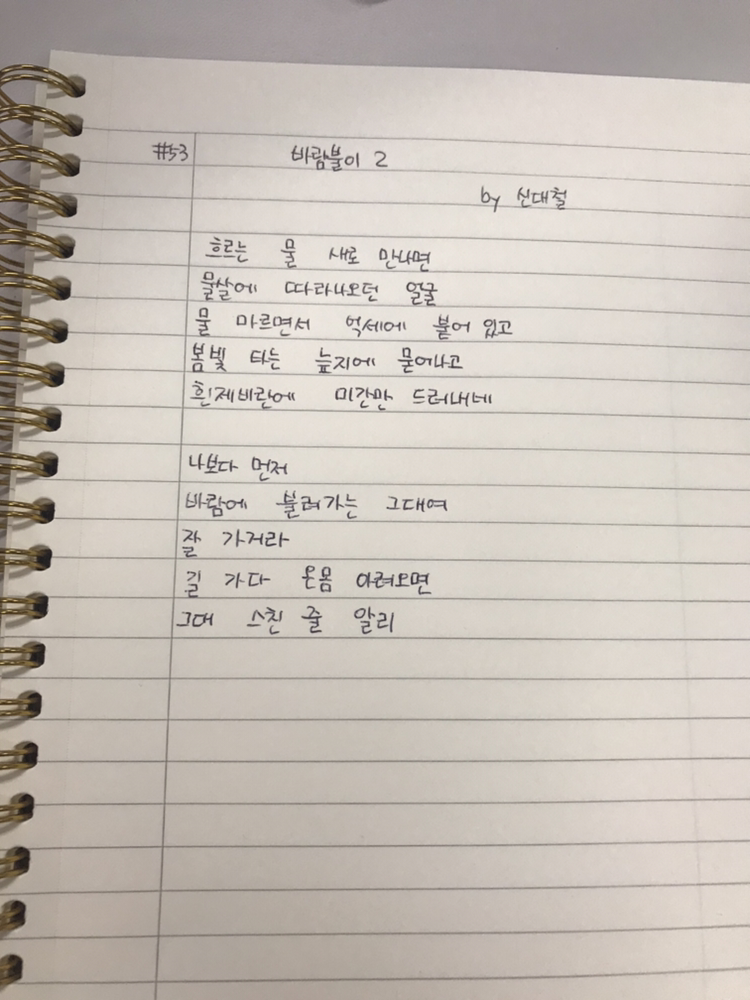 #53 바람불이 2
by 신대철
흐르는 물 새로 만나면
물살에 따라나오던 얼굴
물 마르면서 억세에 붙어 있고
봄빛 타는 늪지에 묻어나고
흰제비란에 미간만 드러내네
나보다 먼저
바람에 불려가는 그대여
잘 가거라
길 가다 온몸 아려오면
그대 스친 줄 알리